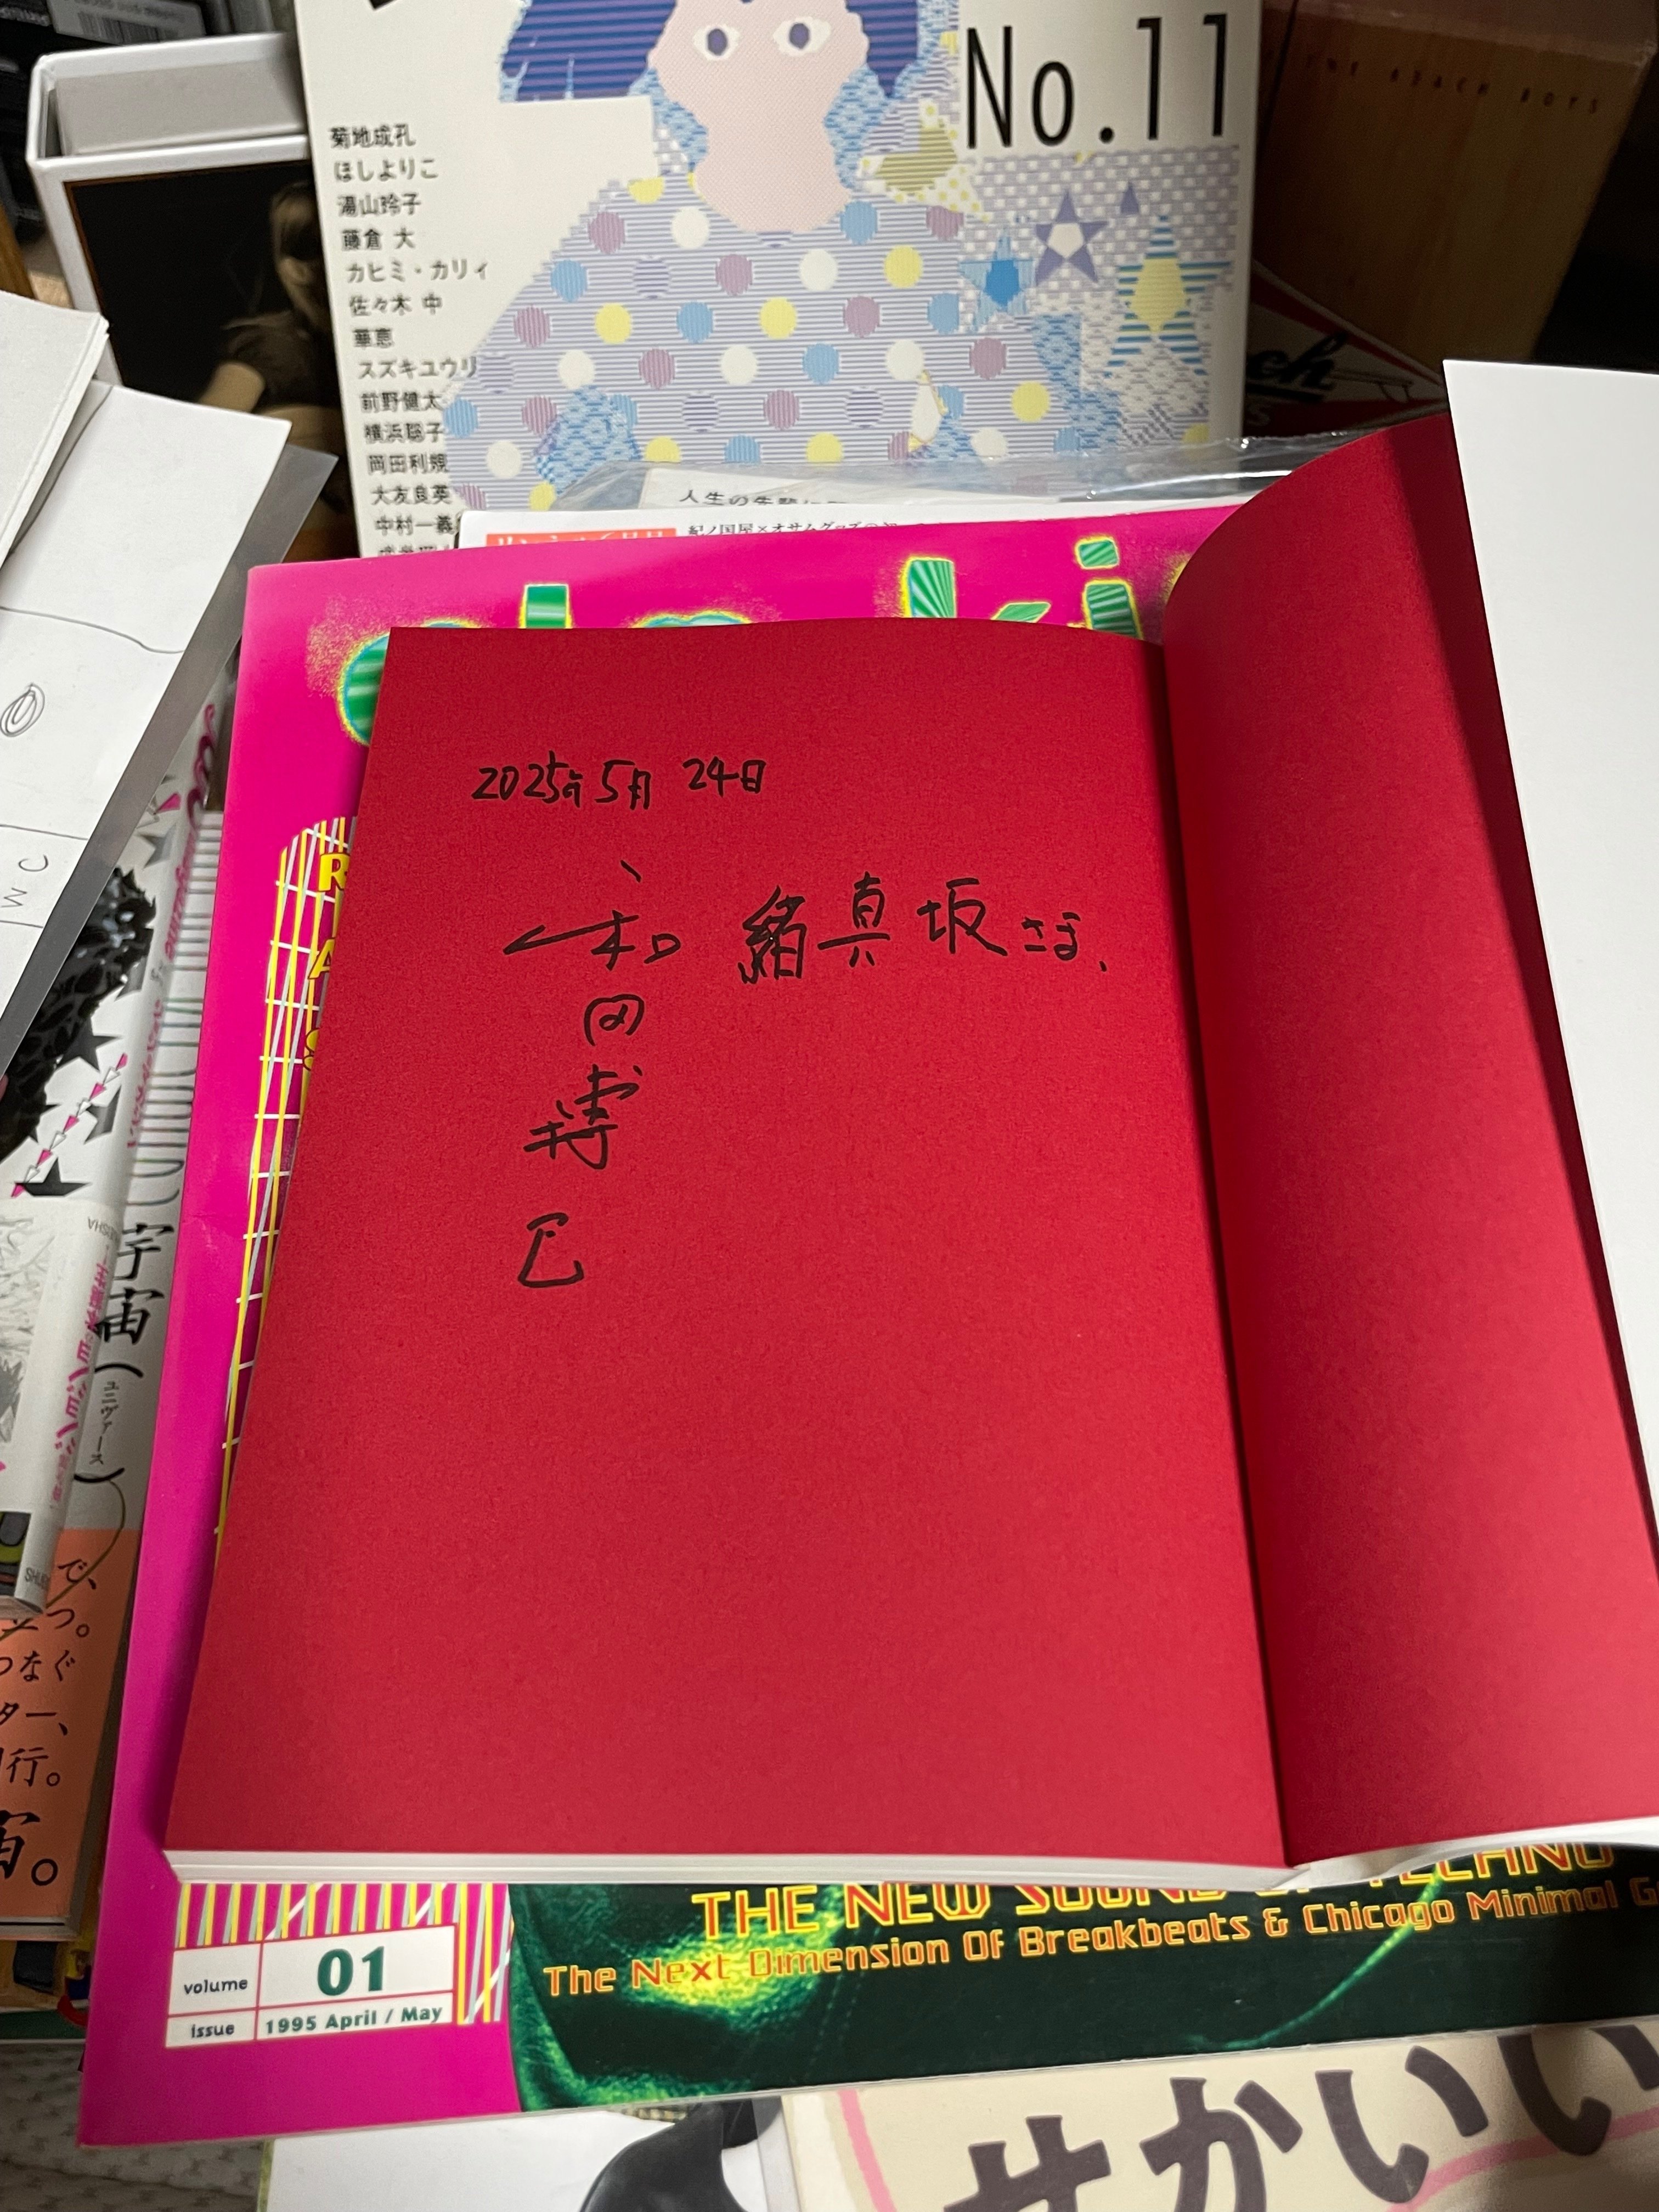 No.11
菊地成孔
ほしよりこ
湯山玲子
藤倉 大
カヒミ・カリィ
佐々木 中
華恵
スズキユウリ
前野健太
横浜聡子
岡田利規
大友良英
中村一義
THE BEACH BOYS
人生の失敗
紀ノ国屋×オサムグッズの
2025年5月24日
緒真坂さま、
和田博巳
WC
宇宙(ユニヴァース)
で、
つ。
つなぐ
ター、
行。
宙。
THE NEW SOUND OF TECHNO
The Next Dimension Of Breakbeats & Chicago Minimal
volume 01
issue 1995 April / May
せかいい